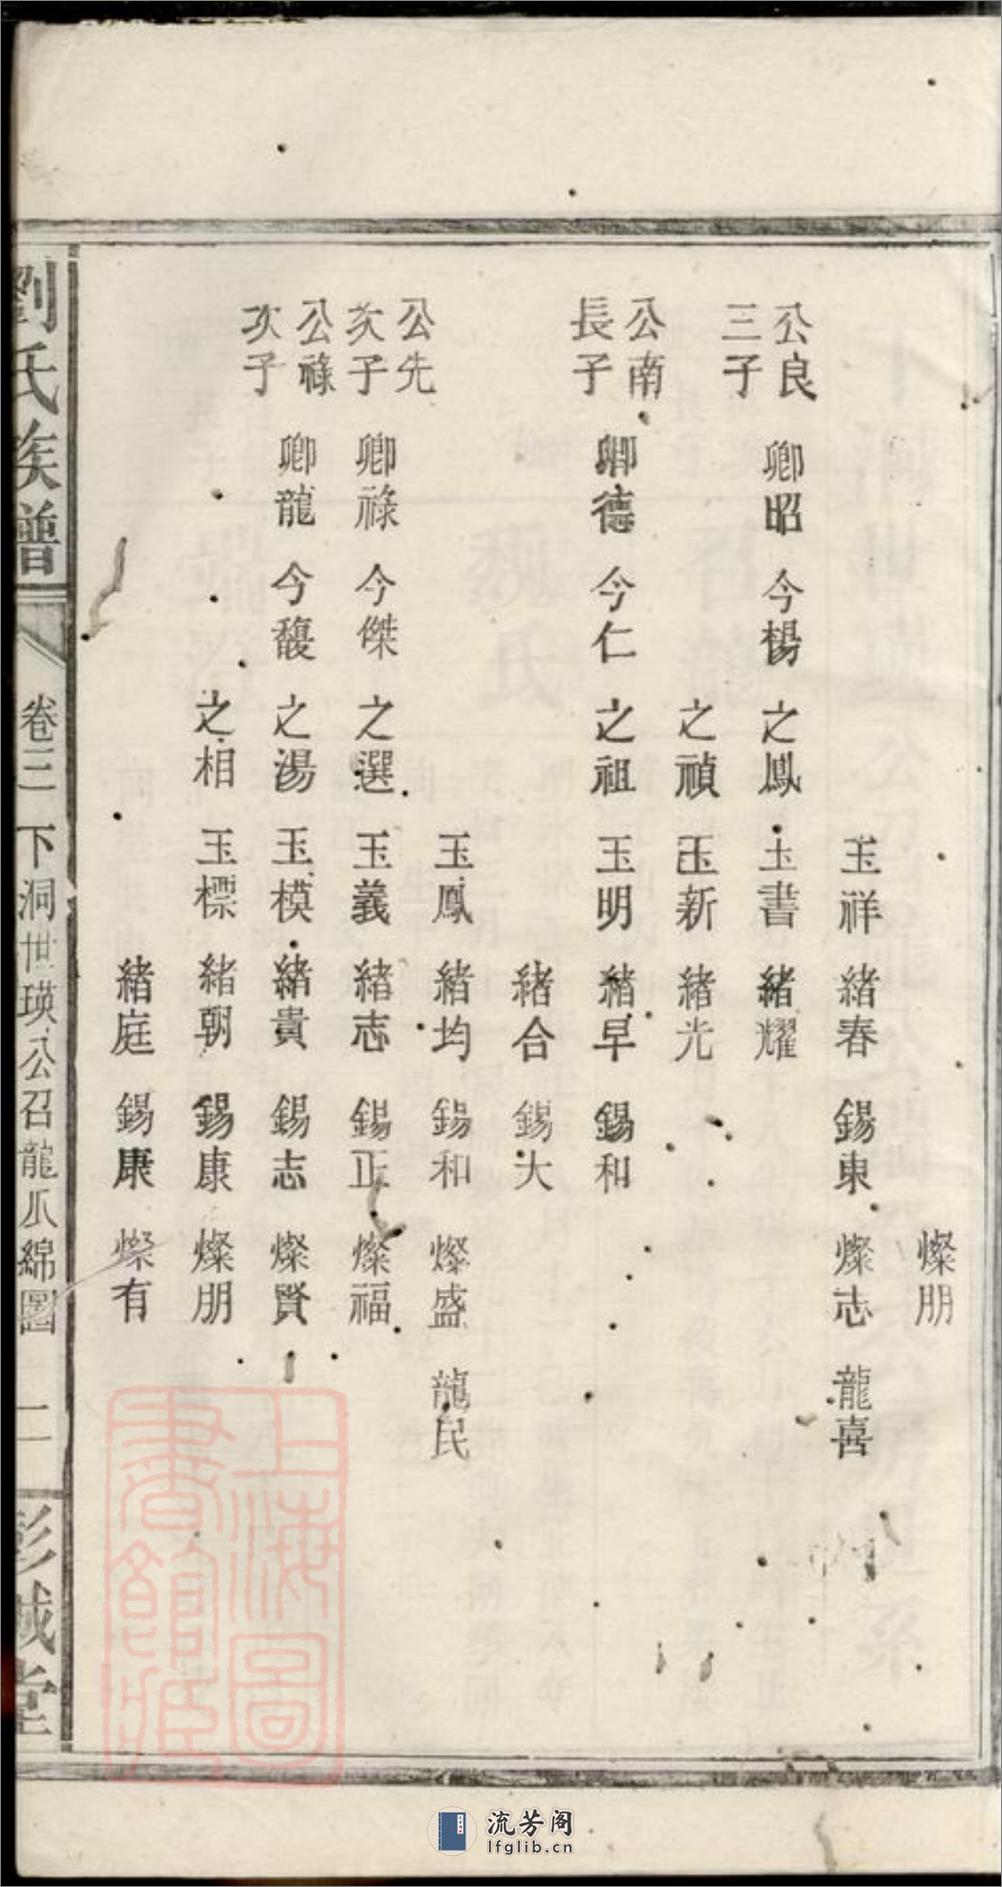 燦朋
玉祥 緒春 錫東 燦志 龍喜
公良
三子
卿昭 今楊 之鳳 玉書 緒耀
之禎 玉新 緒光
公南
長子
卿德 今仁 之祖 玉明 緒早 錫和
緒合 錫大
玉鳳 緒均 錫和 燦盛 龍民
公先
次子
卿祿 今傑 之選 玉義 緒志 錫正 燦福
公祿
次子
卿龍 今馥 之湯 玉模 緒貴 錫志 燦賢
之相 玉標 緒朝 錫康 燦朋
緒庭 錫康 燦有
劉氏族譜 卷三 下洞世瑛公召龍瓜綿圖 二 彭城堂
上海圖
書館藏
流芳阁
lfglib.cn